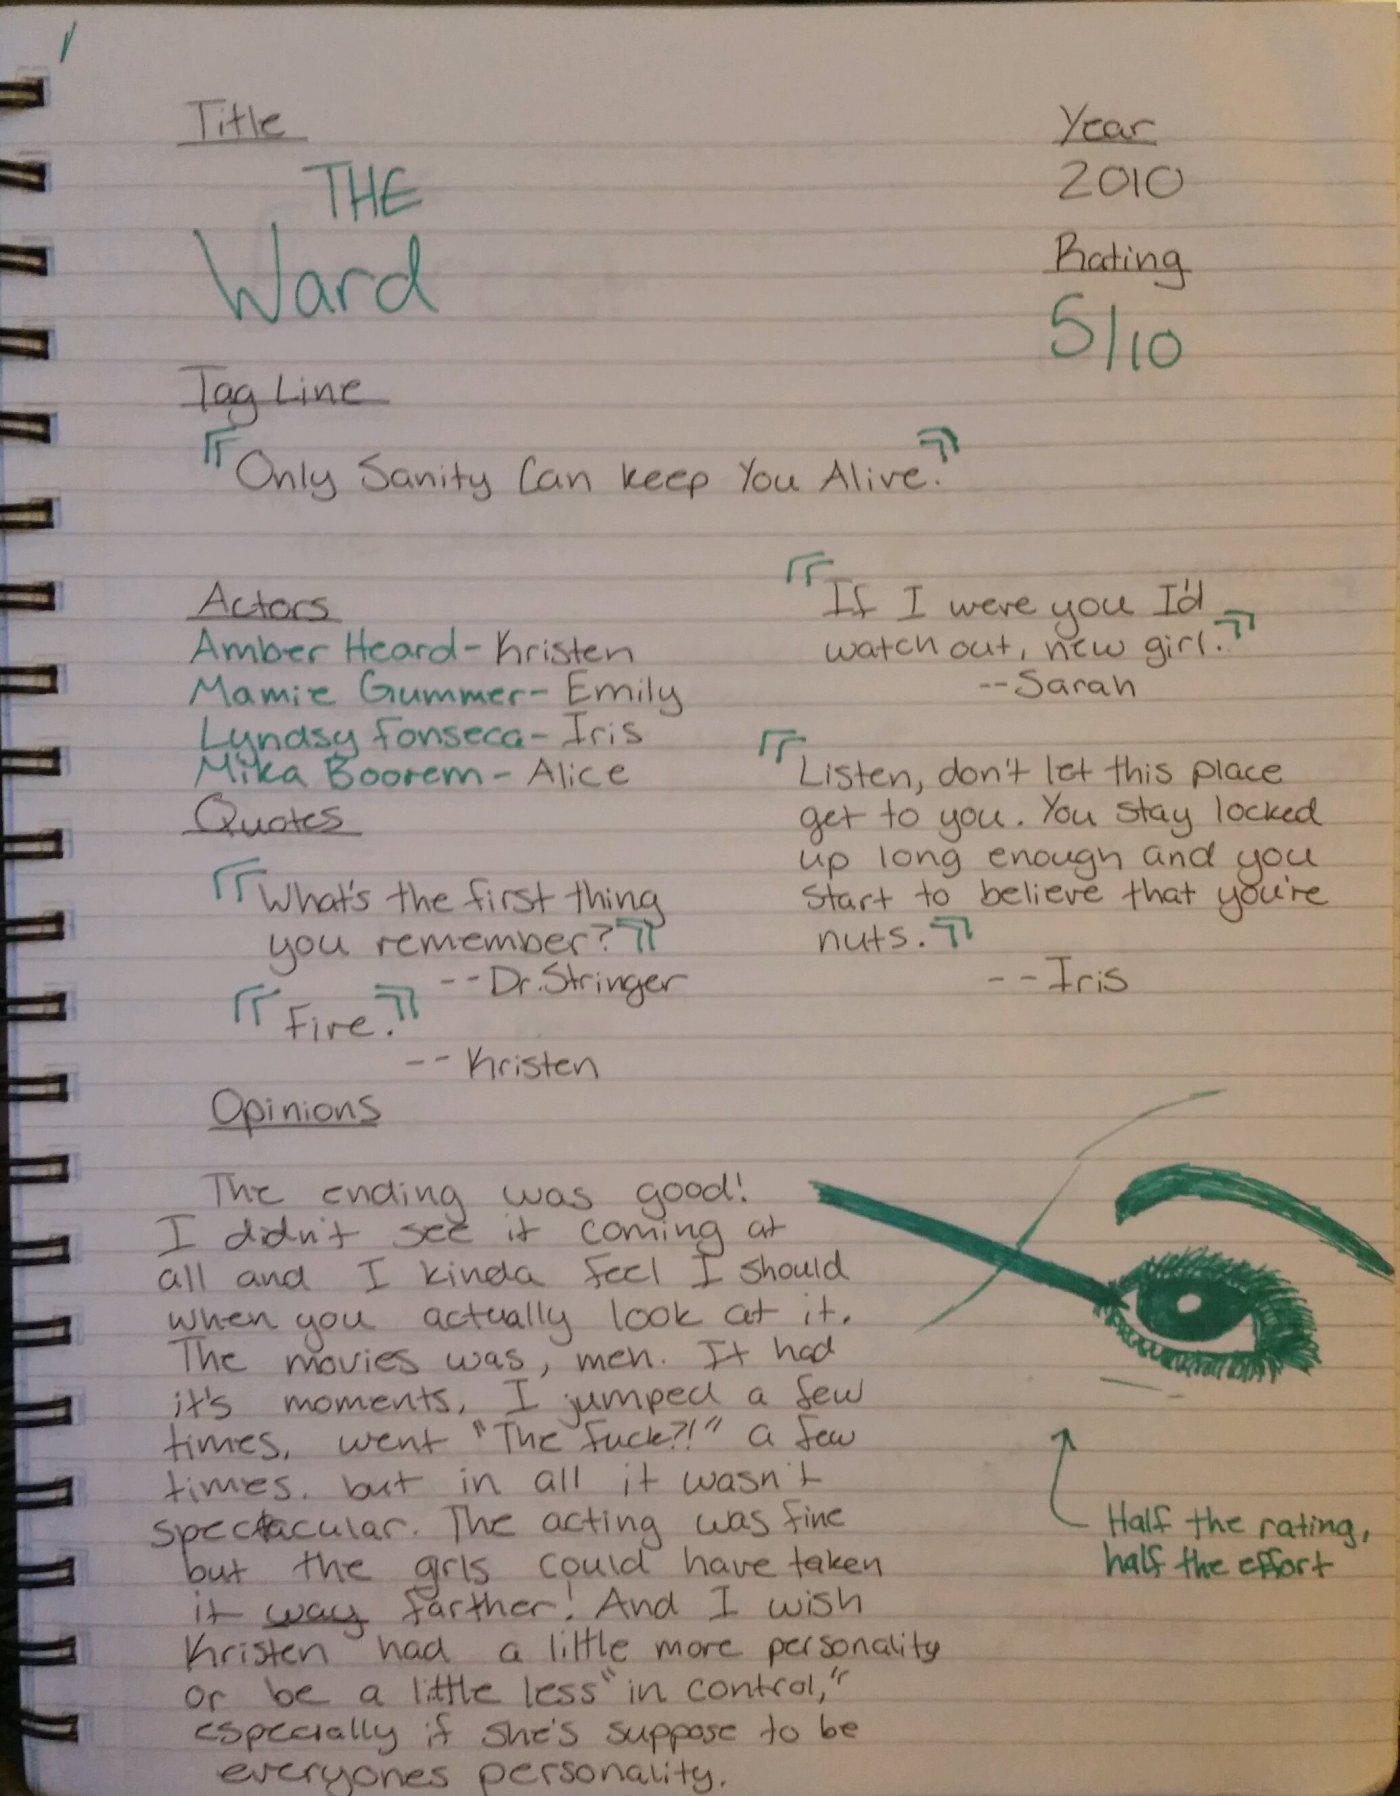 Title
THE
Ward
Year
2010
Rating
5/10
Tag Line
"Only Sanity Can Keep You Alive."
Actors
Amber Heard - Kristen
Mamie Gummer - Emily
Lyndsy Fonseca - Iris
Mika Boorem - Alice
Quotes
"What's the first thing
you remember?"
--Dr. Stringer
"Fire."
-- Kristen
"If I were you I'd
watch out, new girl."
--Sarah
"Listen, don't let this place
get to you. You stay locked
up long enough and you
start to believe that you're
nuts."
--Iris
Opinions
The ending was good!
I didn't see it coming at
all and I kinda feel I should
when you actually look at it.
The movies was, meh. It had
it's moments, I jumped a few
times, went "The fuck?!" a few
times. but in all it wasn't
spectacular. The acting was fine
but the girls could have taken
it way farther! And I wish
Kristen had a little more personality
or be a little less "in control,"
especially if she's suppose to be
everyones personality.
Half the rating,
half the effort